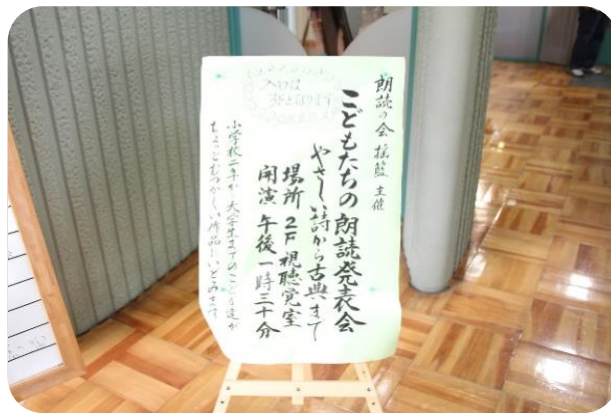 朗読の会 揺籃 主催
こどもたちの朗読発表会
やさしい詩から古典まで
場所 2F 視聴覚室
開演 午後一時三十分
小学校二年から大学生までのこども達が
ちょっとむつかしい作品にいどみます
入口は
3Fとなります